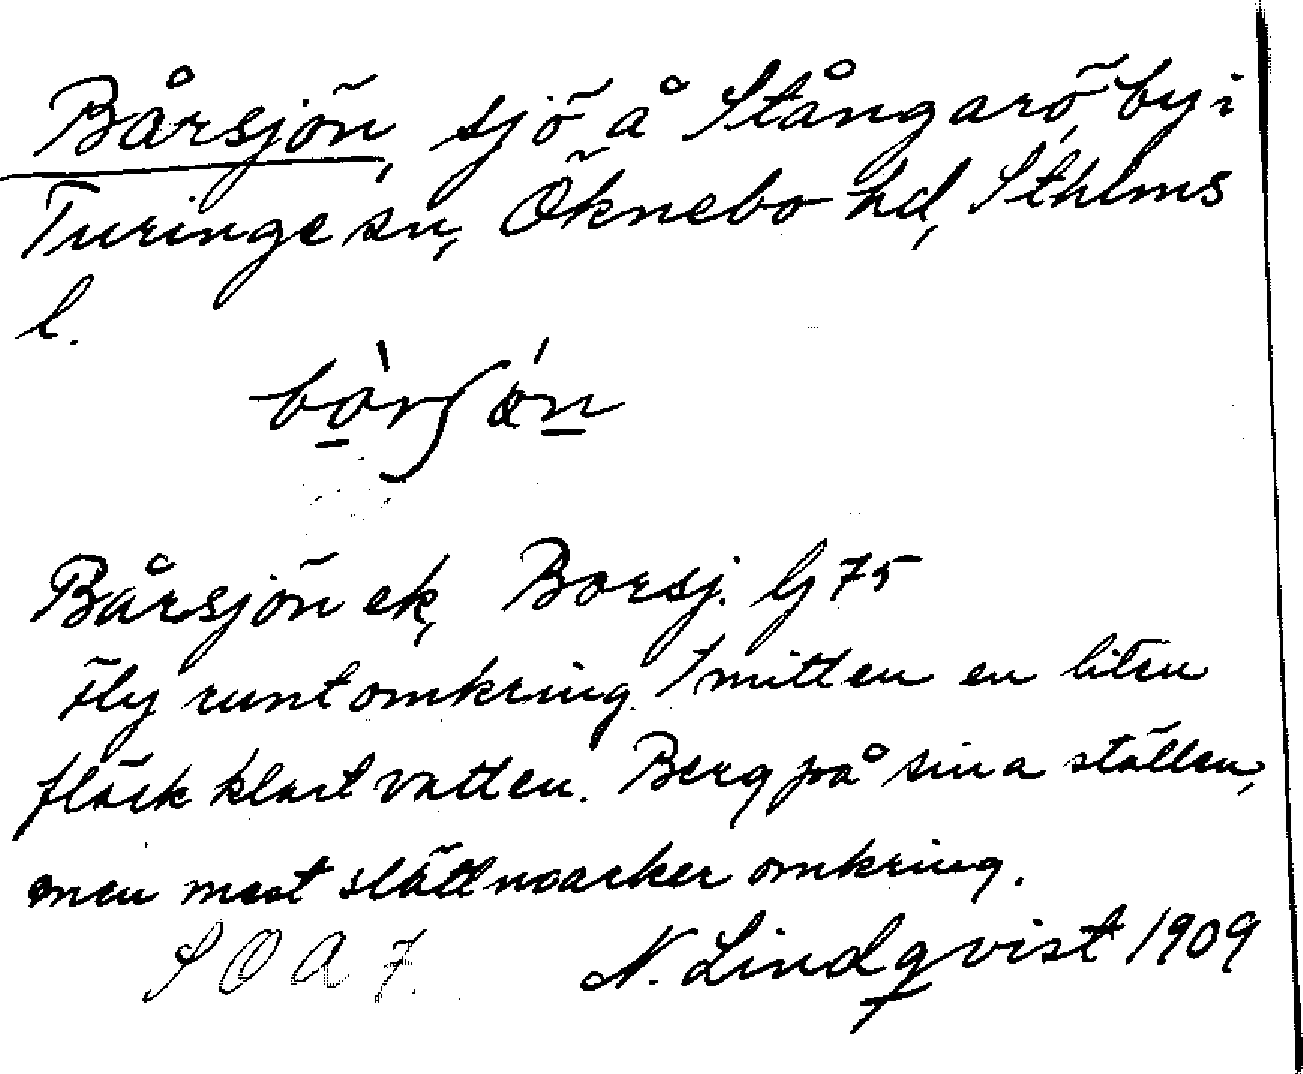 Bårsjön, sjö å Stångarö by i
Turinge sn, Öknebo hd, Sthlms
l.
Bårsjön ek, Borsj. Gj 75
Fly runt omkring. I mitten en liten
fläck klart vatten. Berg på sina ställen,
men mest slättmarker omkring.
S O A 7. N. Lindqvist 1909